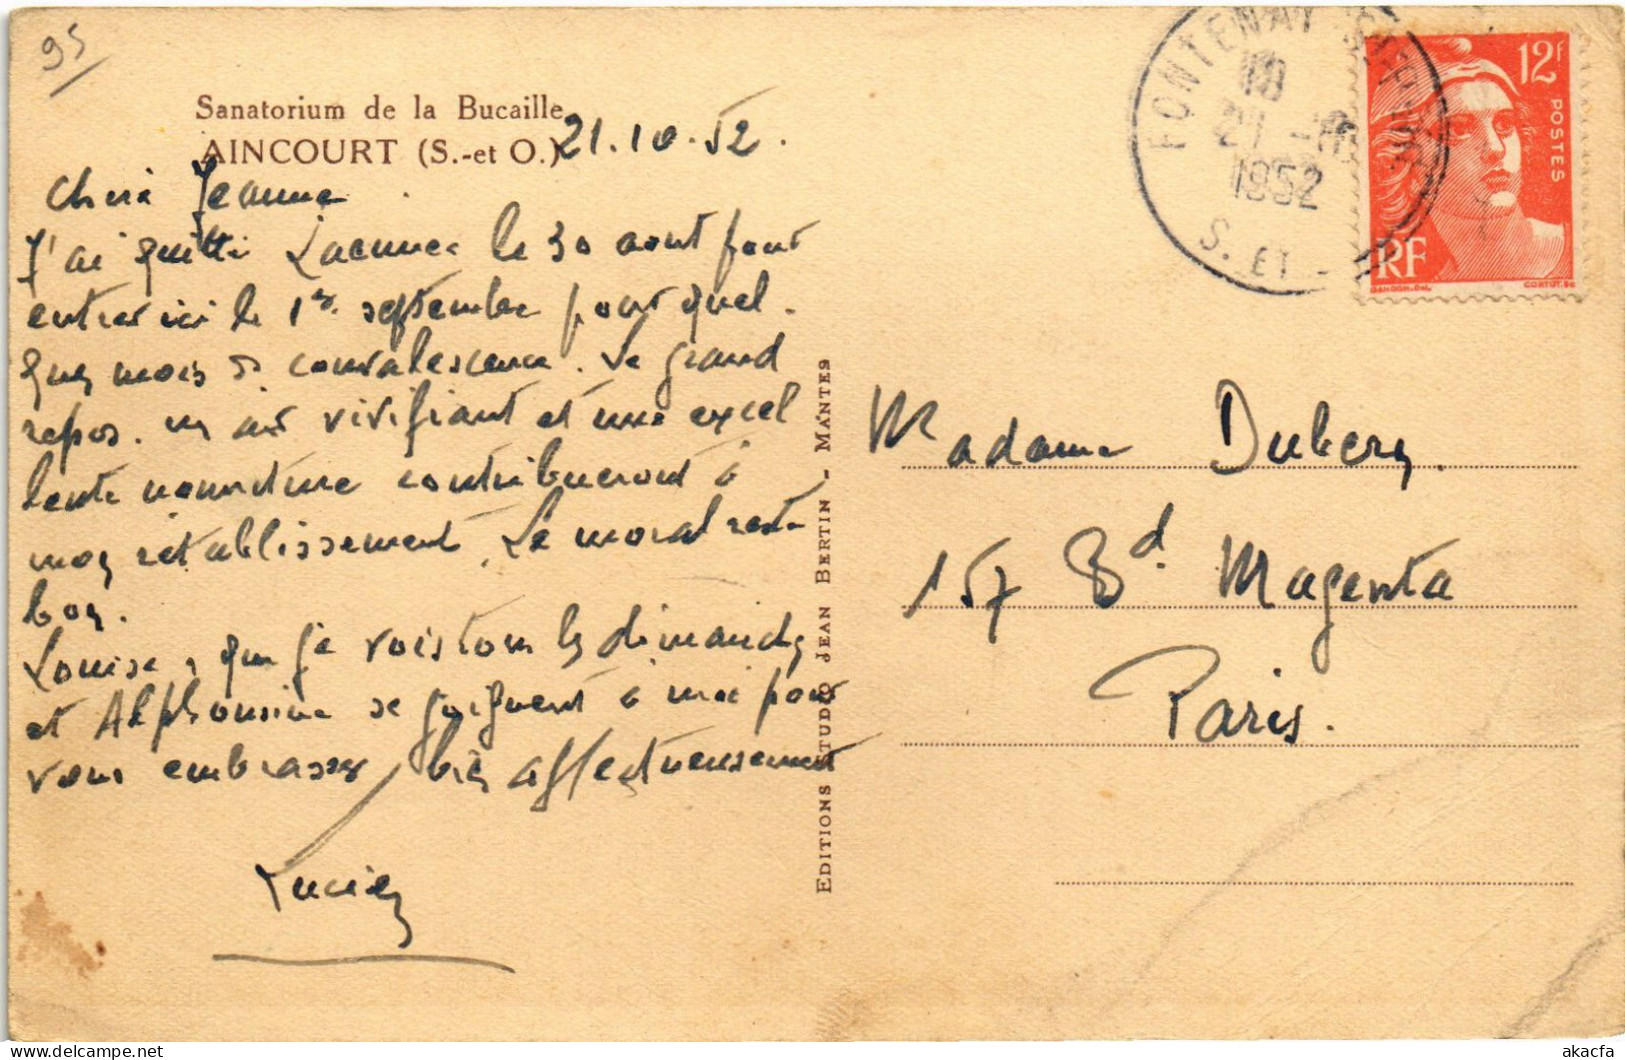 95
Sanatorium de la Bucaille
AINCOURT (S.-et O.)
21.10.52.
Chère Jeanne
J'ai quitté Laennec le 30 aout pour
entrer ici le 1er septembre pour quel-
ques mois de convalescence. Le grand
repos. un air vivifiant et une excel
lente nourriture contribueront à
mon rétablissement. Le moral reste
bon.
Louise, que je vois tous les dimanches
et Alphonsine se joignent à moi pour
vous embrasser bien affectueusement
Lucien
EDITIONS STUDIO JEAN BERTIN - MANTES
FONTENAY
18
21 -10
1952
S. ET -
12F
POSTES
RF
GANDON.DEL.
CORTOT.SC
Madame Dubery.
157 Bd. Magenta
Paris.
akacfa